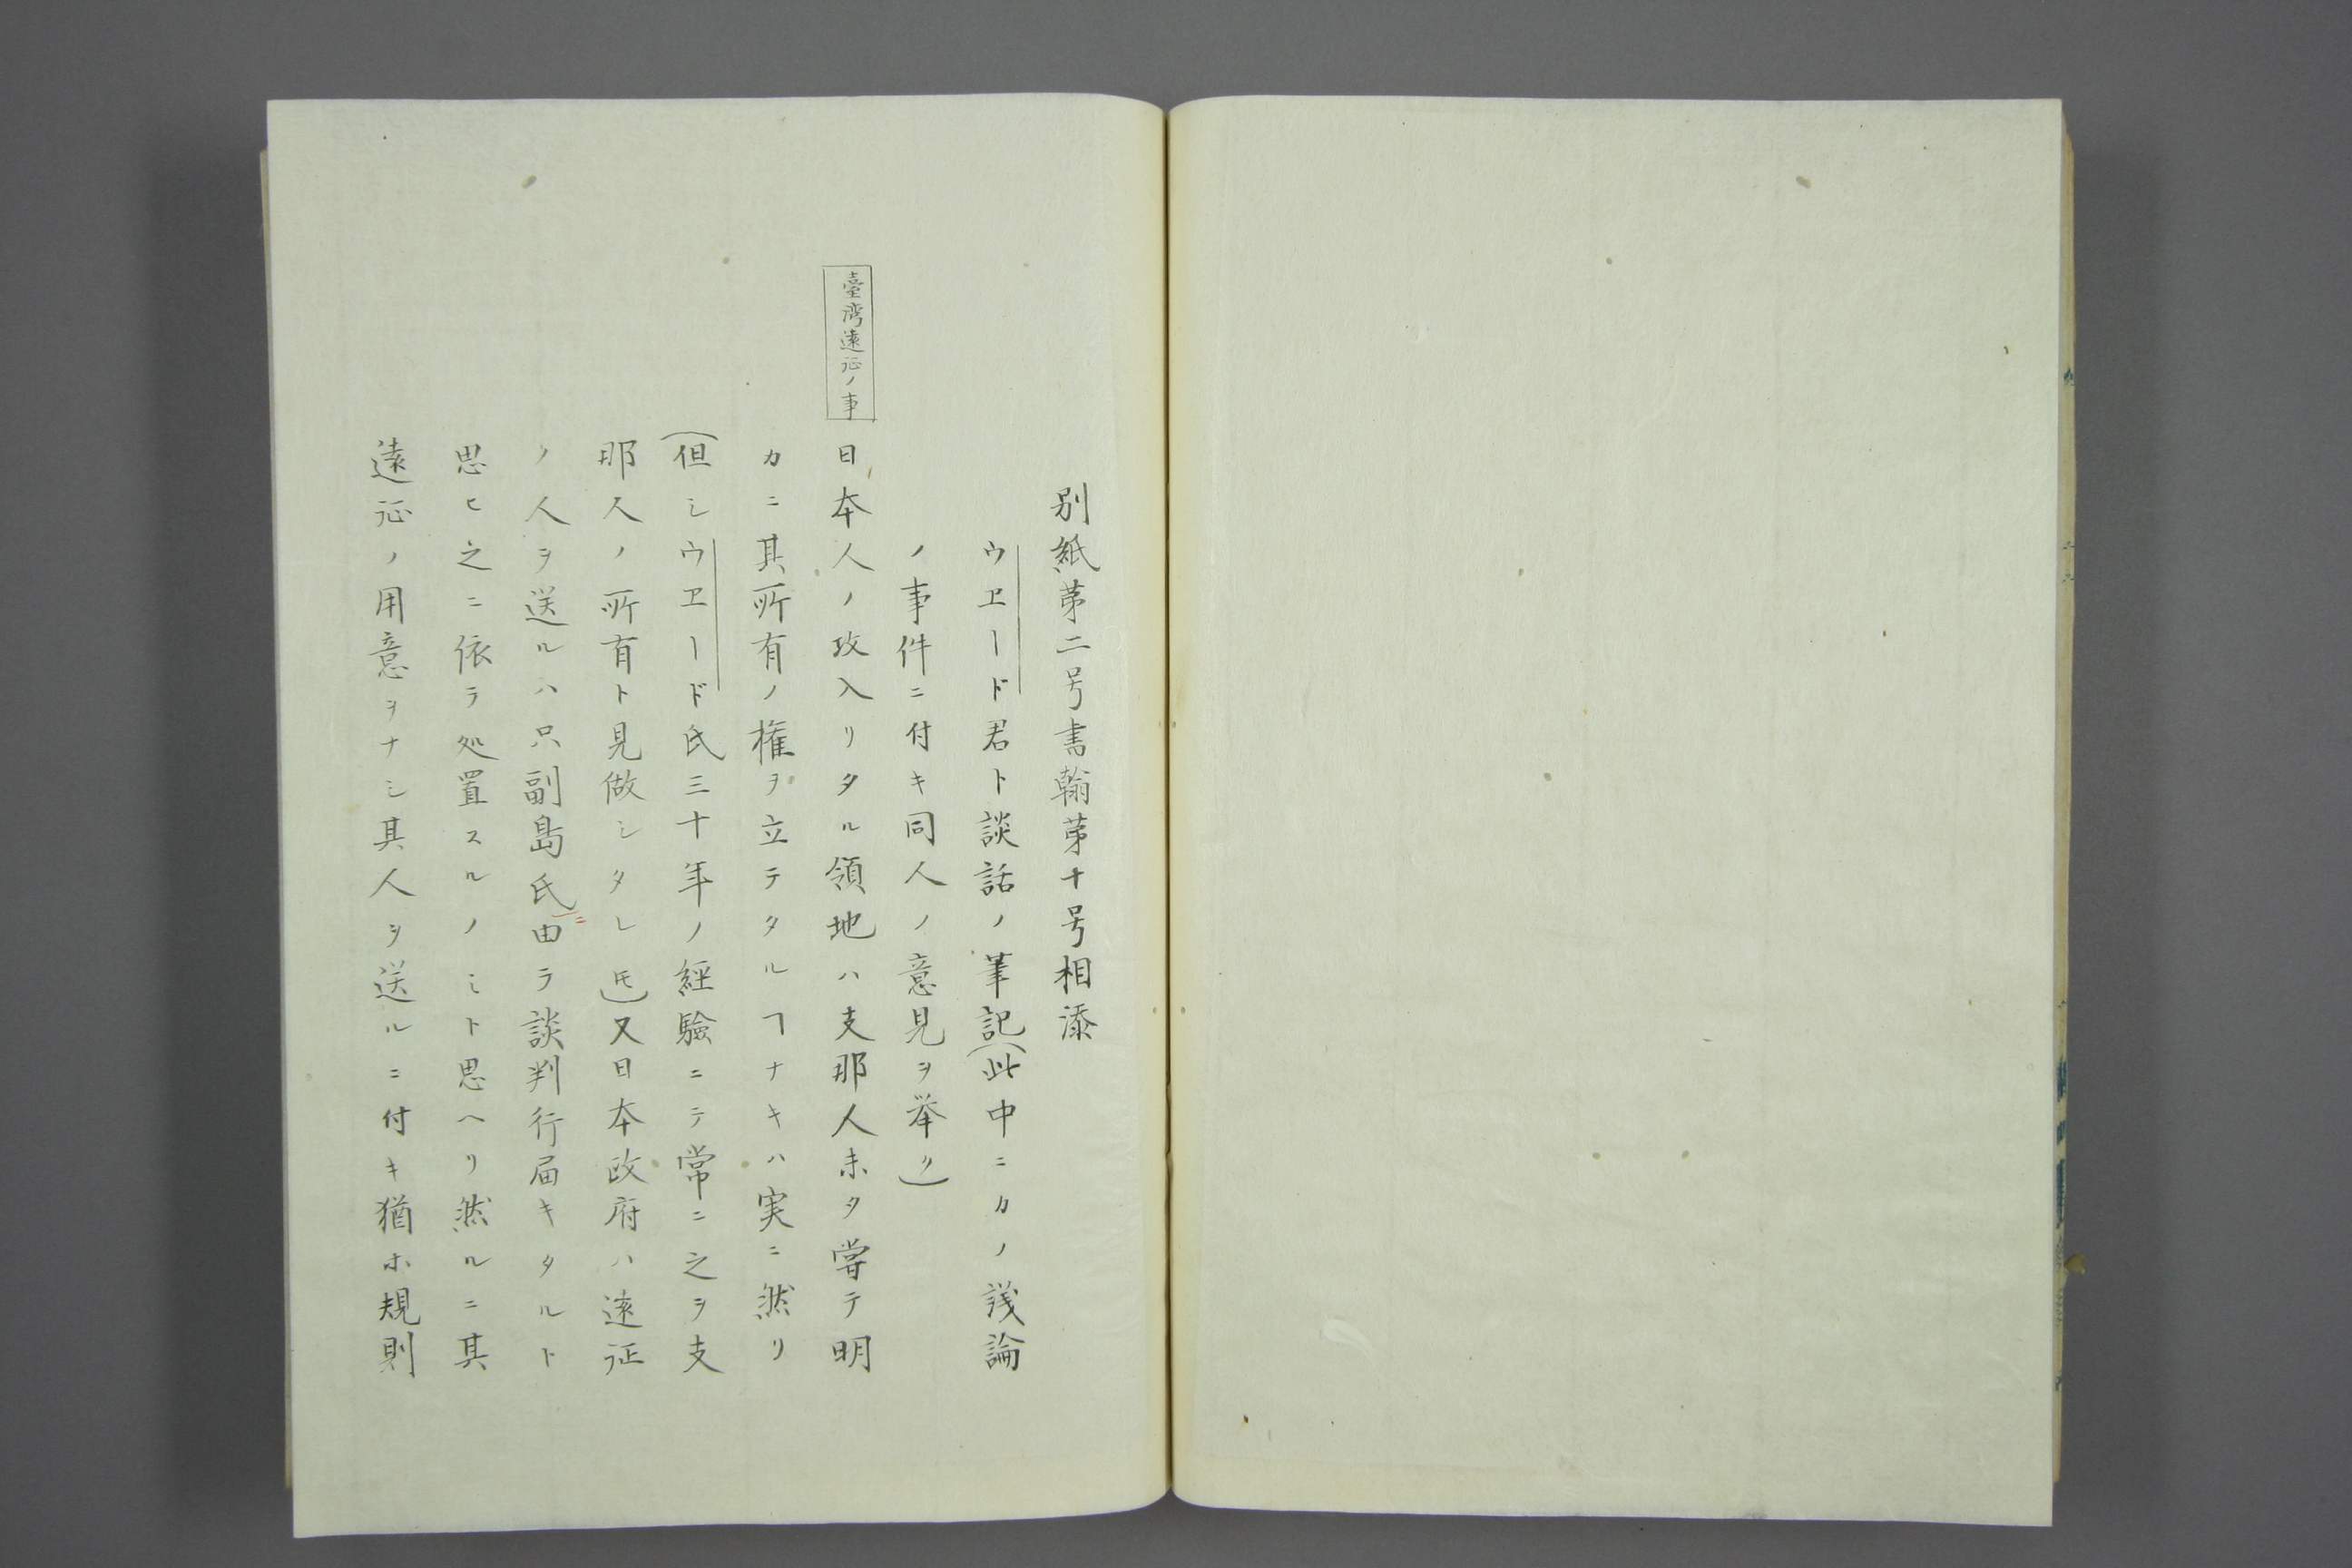 別紙第二号書翰第十号相添
ウヱード君ト談話ノ筆記(此中ニカノ議論
ノ事件ニ付キ同人ノ意見ヲ挙ク)
臺湾遠征ノ事
日本人ノ攻入リタル領地ハ支那人未タ嘗テ明
カニ其所有ノ権ヲ立テタルヿナキハ実ニ然リ
(但シウヱード氏三十年ノ経験ニテ常ニ之ヲ支
那人ノ所有ト見做シタレ𪜈)又日本政府ハ遠征
ノ人ヲ送ルハ只副島氏ニ由ラ談判行届キタルト
思ヒ之ニ依ラ処置スルノミト思ヘリ然ルニ其
遠征ノ用意ヲナシ其人ヲ送ルニ付キ猶ホ規則